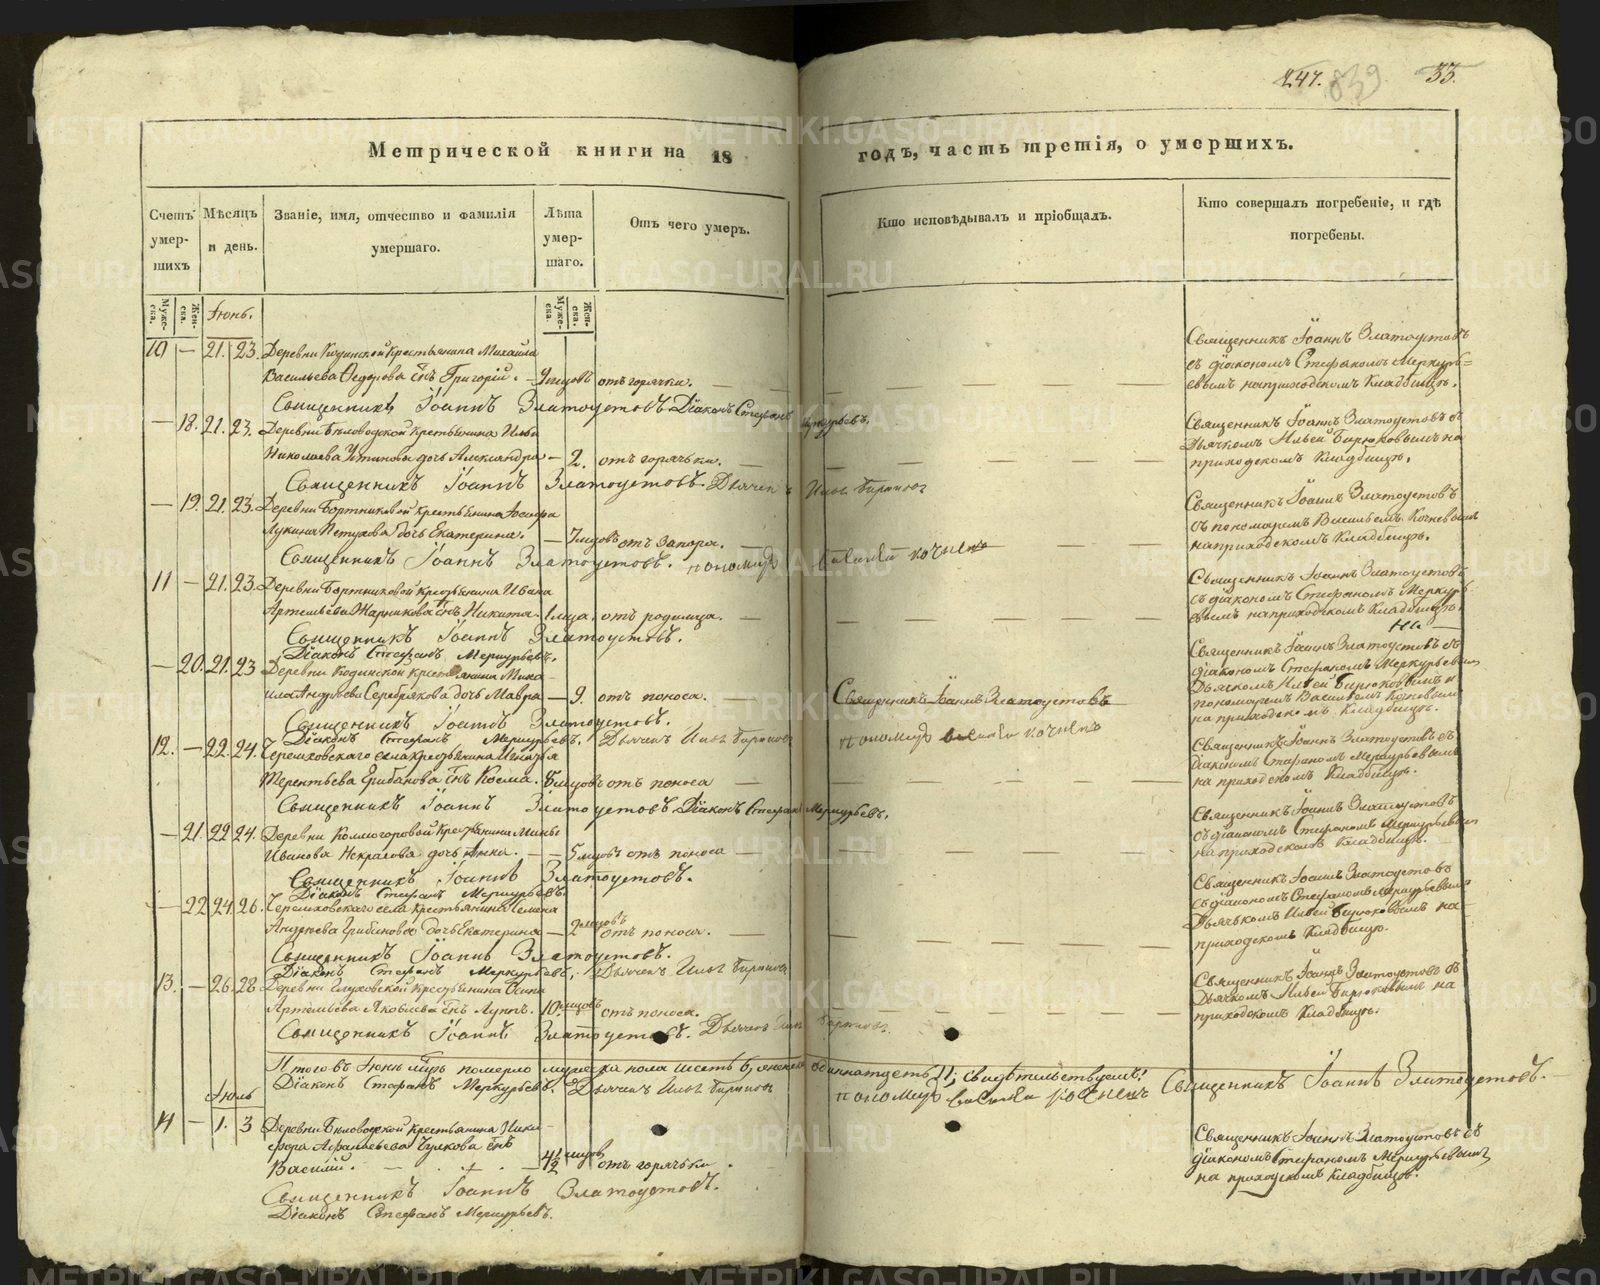 247. 839 33.
Метрической книги на 18 годъ, часть третія, о умершихъ.
Счетъ умер- шихъ
Мѣсяцъ и день.
Званіе, имя, отчество и фамилія умершаго.
Лѣта умер- шаго.
Отъ чего умеръ.
Кто исповѣдывалъ и пріобщалъ.
Кто совершалъ погребеніе, и гдѣ погребены.
Муже- ска. Жен- ска. Іюнь. Муже- ска. Жен- ска.
10 — 21. 23. Деревни Кодинской Крестьянина Михаила
Васильева Федорова сынъ Григорій. — 9 мцовъ отъ горячки. —
Священникъ Іоаннъ Златоустовъ Діаконъ Стефанъ Меркурьевъ.
Священникъ Іоаннъ Златоустовъ
съ діакономъ Стефаномъ Меркурь=
евымъ на приходскомъ Кладбищѣ.
— 18. 21. 23. Деревни Бѣловодской Крестьянина Ильи
Николаева Устинова дочь Александра — 2. отъ горячьки. —
Священникъ Іоаннъ Златоустовъ. Дьячекъ Илья Бирюковъ
Священникъ Іоаннъ Златоустовъ съ
Дьячкомъ Ильей Бирюковымъ на
приходскомъ Кладбищѣ.
— 19. 21. 23. Деревни Бортниковой Крестьянина Іосифа
Лукина Петухова дочь Екатерина. — 7 мцовъ отъ запора. —
Священникъ Іоаннъ Златоустовъ. пономарь василей кочневъ
Священникъ Іоаннъ Златоустовъ
съ пономаремъ Васильемъ Кочневымъ
на приходскомъ Кладбищѣ.
11 — 21. 23. Деревни Бортниковой Крестьянина Ивана
Артемьева Жарникова сынъ Никита — 1 мца. отъ родимца. —
Священникъ Іоаннъ Златоустовъ.
Діаконъ Стефанъ Меркурьевъ.
Священникъ Іоаннъ Златоустовъ
съ діакономъ Стефаномъ Меркурь
евымъ на приходскомъ Кладбищѣ.
— 20. 21. 23 Деревни Кодинской Крестьянина Миха-
ила Андреева Серебрякова дочь Мавра — 9. отъ поноса. — Священникъ Іоаннъ Златоустовъ
Священникъ Іоаннъ Златоустовъ.
Діаконъ Стефанъ Меркурьевъ. Дьячекъ Илья Бирюковъ пономарь василей кочневъ
Священникъ Іоаннъ Златоустовъ съ
діакономъ Стефаномъ Меркурьевымъ
Дьячкомъ Ильей Бирюковымъ и
пономаремъ Васильемъ Кочневымъ
на приходскомъ Кладбищѣ.
12. — 22. 24. Черемховскаго села Крестьянина Игнатья
Терентьева Грибанова сынъ Козма. 8 мцовъ отъ поноса —
Священникъ Іоаннъ Златоустовъ Діаконъ Стефанъ Меркурьевъ.
Священникъ Іоаннъ Златоустовъ съ
діакономъ Стефаномъ Меркурьевымъ
на приходскомъ Кладбищѣ.
— 21. 22 24. Деревни Колмогоровой Крестьянина
Иванова Некрасова дочь Анна. — 5 мцовъ отъ поноса —
Священникъ Іоаннъ Златоустовъ.
Діаконъ Стефанъ Меркурьевъ.
Священникъ Іоаннъ Златоустовъ
съ діакономъ Стефаномъ Меркурьевымъ
на приходскомъ Кладбищѣ.
— 22 24. 26. Черемховскаго села Крестьянина Семена
Андреева Грибанова дочь Екатерина — 2 мцовъ отъ поноса. —
Священникъ Іоаннъ Златоустовъ.
Діаконъ Стефанъ Меркурьевъ. Дьячекъ Илья Бирюковъ
Священникъ Іоаннъ Златоустовъ
съ діакономъ Стефаномъ Меркурьевымъ
Дьячькомъ Ильей Бирюковымъ на
приходскомъ Кладбищѣ.
13. — 26. 28 Деревни Глуховской Крестьянина Осипа
Артемьева Яковлева сынъ Луппъ. 10 мцовъ отъ поноса.
Священникъ Іоаннъ Златоустовъ. Дьячекъ Илья Бирюковъ
Священникъ Іоаннъ Златоустовъ съ
Дьячкомъ Ильей Бирюковымъ на
приходскомъ Кладбищѣ.
Итого въ Іюнѣ мцѣ померло мужеска пола шесть 6, женска одиннатцеть 11, свидѣтельствуемъ: Священникъ Іоаннъ Златоустовъ.
Діаконъ Стефанъ Меркурьевъ. Дьячекъ Илья Бирюковъ пономарь василей кочневъ
Іюль
14 — 1. 3 Деревни Бѣловодской Крестьянина Ники-
фора Афанасьева Чулкова сынъ
Василій. — 4½ мцовъ отъ горячьки.
Священникъ Іоаннъ Златоустовъ.
Діаконъ Стефанъ Меркурьевъ.
Священникъ Іоаннъ Златоустовъ съ
діакономъ Стефаномъ Меркурьевымъ
на приходскомъ Кладбищѣ.
METRIKI.GASO-URAL.RU